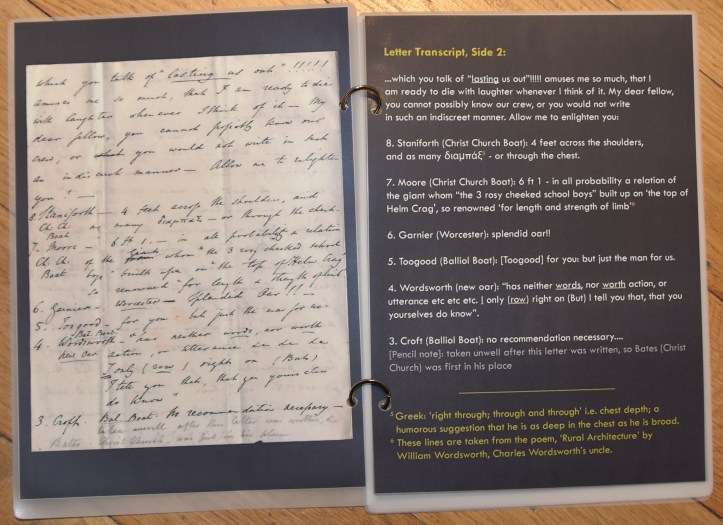 which you talk of "lasting us out" !!!!!
amuses me so much, that I am ready to die
with laughter whenever I think of it — My
dear fellow, you cannot possibly know our
crew, or you would not write in such
an indiscreet manner — Allow me to enlighten
you" —
8. Staniforth — 4 feet across the shoulders, and
Ch. Ch. as many — or through the chest.
Boat
7. Moore — 6 ft 1. — in all probability a relation
Ch. Ch. of the giant whom "the 3 rosy cheeked school
Boat boys" "built up" on "the top of Helm Crag"
so renowned "for length & strength of limb"
6. Garnier — Worcester — Splendid Oar!! —
5. Toogood — for you — but just the man for us —
Bal. Boat
4. Wordsworth — "has neither words, nor worth
new oar action, or utterance &c &c &c
I only (row) right on (But)
I tell you that, that you yourselves
do know"
3. Croft. Bal. Boat. No recommendation necessary —
taken unwell after this letter was written, so
Bates Christ Church, was first in his place
Letter Transcript, Side 2:
...which you talk of "lasting us out"!!!!! amuses me so much, that I
am ready to die with laughter whenever I think of it. My dear fellow,
you cannot possibly know our crew, or you would not write
in such an indiscreet manner. Allow me to enlighten you:
8. Staniforth (Christ Church Boat): 4 feet across the shoulders,
and as many διαμπάξ⁵ - or through the chest.
7. Moore (Christ Church Boat): 6 ft 1 - in all probability a relation of
the giant whom "the 3 rosy cheeked school boys" built up on 'the top of
Helm Crag', so renowned 'for length and strength of limb'⁶
6. Garnier (Worcester): splendid oar!!
5. Toogood (Balliol Boat): [Toogood] for you: but just the man for us.
4. Wordsworth (new oar): "has neither words, nor worth action, or
utterance etc etc etc. I only (row) right on (But) I tell you that, that you
yourselves do know".
3. Croft (Balliol Boat): no recommendation necessary....
[Pencil note]: taken unwell after this letter was written, so Bates (Christ
Church) was first in his place
⁵ Greek: 'right through; through and through' i.e. chest depth; a
humorous suggestion that he is as deep in the chest as he is broad.
⁶ These lines are taken from the poem, 'Rural Architecture' by
William Wordsworth, Charles Wordsworth's uncle.